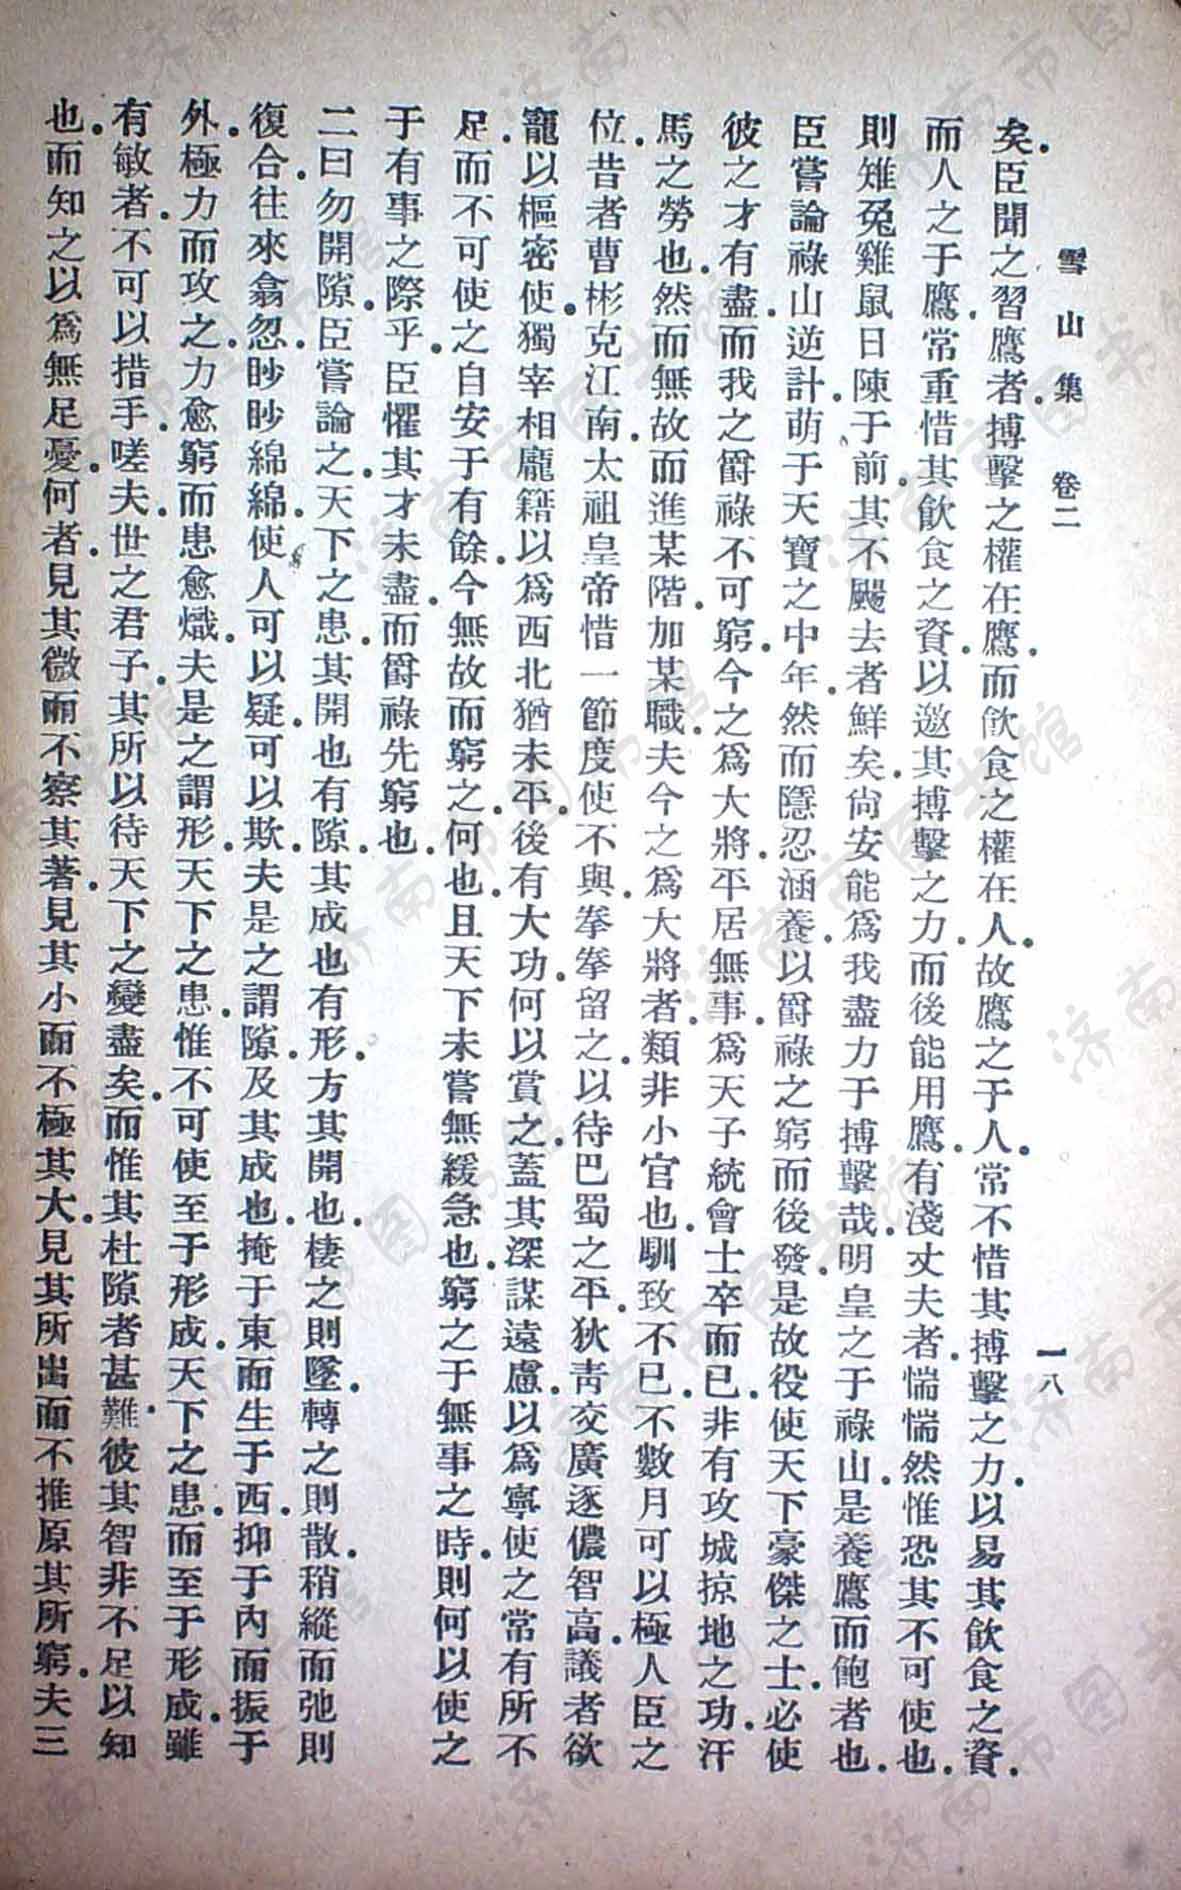 雪山集 卷二 一八
矣.臣聞之習鷹者.搏擊之權在鷹.而飮食之權在人.故鷹之于人.常不惜其搏擊之力.以易其飮食之資.
而人之于鷹.常重惜其飮食之資.以邀其搏擊之力.而後能用鷹.有淺丈夫者.惴惴然惟恐其不可使也.
則雉兔雞鼠日陳于前.其不颺去者鮮矣.尙安能爲我盡力于搏擊哉.明皇之于祿山.是養鷹而飽者也.
臣嘗論祿山逆計.萌于天寶之中年.然而隱忍涵養.以爵祿之窮而後發.是故役使天下豪傑之士.必使
彼之才有盡.而我之爵祿不可窮.今之爲大將.平居無事.爲天子統會士卒而已.非有攻城掠地之功.汗
馬之勞也.然而無故而進某階.加某職.夫今之爲大將者.類非小官也.馴致不已.不數月可以極人臣之
位.昔者曹彬克江南.太祖皇帝惜一節度使不與.拳拳留之.以待巴蜀之平.狄靑交廣逐儂智高.議者欲
寵以樞密使.獨宰相龐籍.以爲西北猶未平.後有大功.何以賞之.蓋其深謀遠慮.以爲寧使之常有所不
足.而不可使之自安于有餘.今無故而窮之.何也.且天下未嘗無緩急也.窮之于無事之時.則何以使之
于有事之際乎.臣懼其才未盡.而爵祿先窮也.
二曰勿開隙.臣嘗論之.天下之患.其開也有隙.其成也有形.方其開也.棲之則墜.轉之則散.稍縱而弛則
復合.往來翕忽.眇眇綿綿.使人可以疑.可以欺.夫是之謂隙.及其成也.掩于東而生于西.抑于內而振于
外.極力而攻之.力愈窮而患愈熾.夫是之謂形.天下之患.惟不可使至于形成.天下之患.而至于形成.雖
有敏者.不可以措手.嗟夫.世之君子.其所以待天下之變盡矣.而惟其杜隙者甚難.彼其智非不足以知
也.而知之以爲無足憂.何者.見其微而不察其著.見其小而不極其大.見其所出而不推原其所窮.夫三